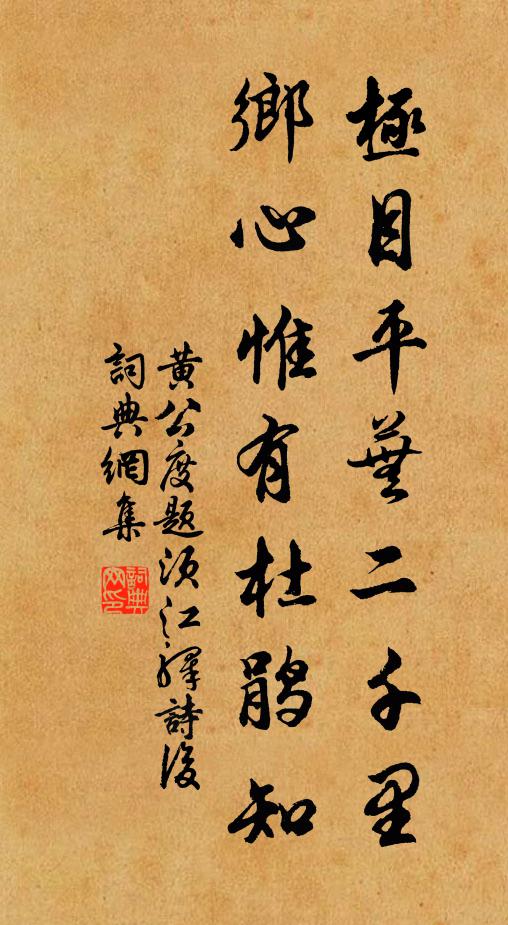 極目平蕪二千里
鄉心惟有杜鵑知
黄公度題须江驛詩後
詞典網集
詞典
网印